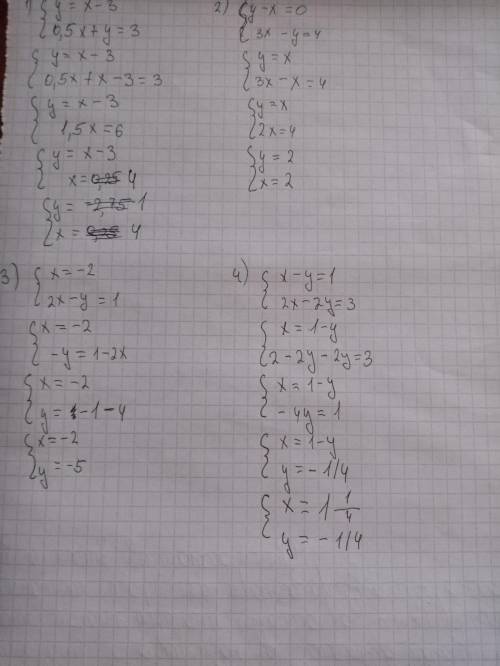 1) y = x - 3
0,5x + y = 3
y = x - 3
0,5x + x - 3 = 3
y = x - 3
1,5x = 6
y = x - 3
x = 4
y = 1
x = 4
2) y - x = 0
3x - y = 4
y = x
3x - x = 4
y = x
2x = 4
y = 2
x = 2
3) x = -2
2x - y = 1
x = -2
-y = 1 - 2x
x = -2
y = -1 - 4
x = -2
y = -5
4) x - y = 1
2x - 2y = 3
x = 1 - y
2 - 2y - 2y = 3
x = 1 - y
-4y = 1
x = 1 - y
y = -1/4
x = 1 1/4
y = -1/4